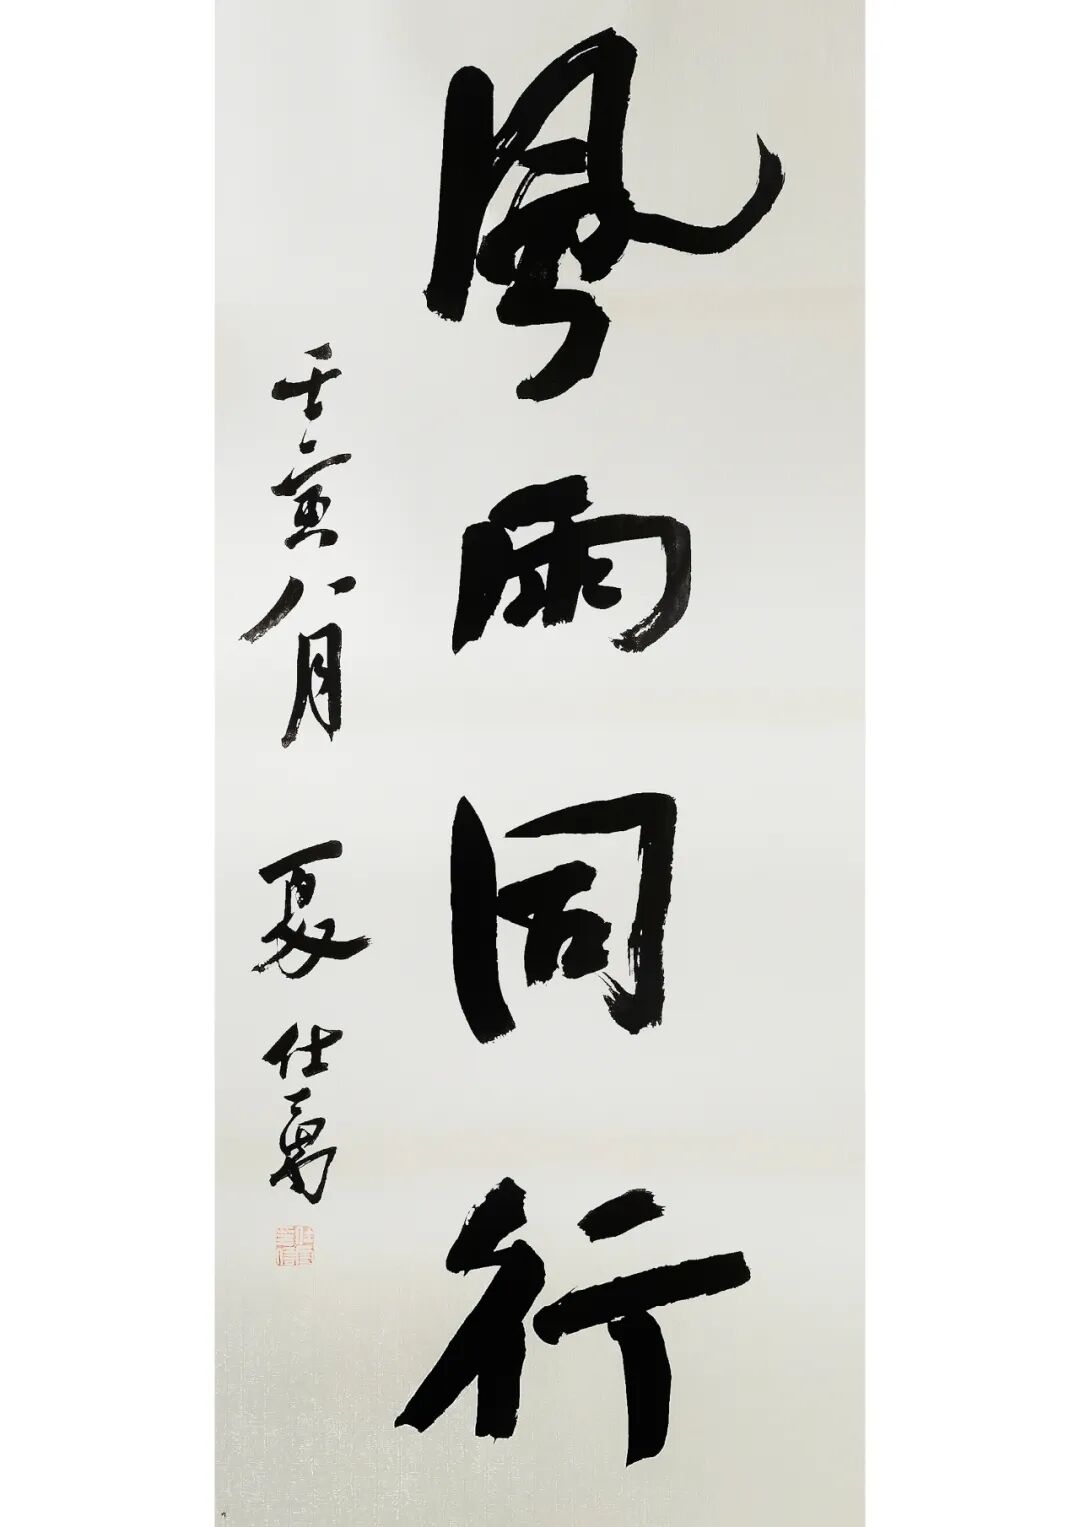 風雨同行
壬寅八月 夏仕萬